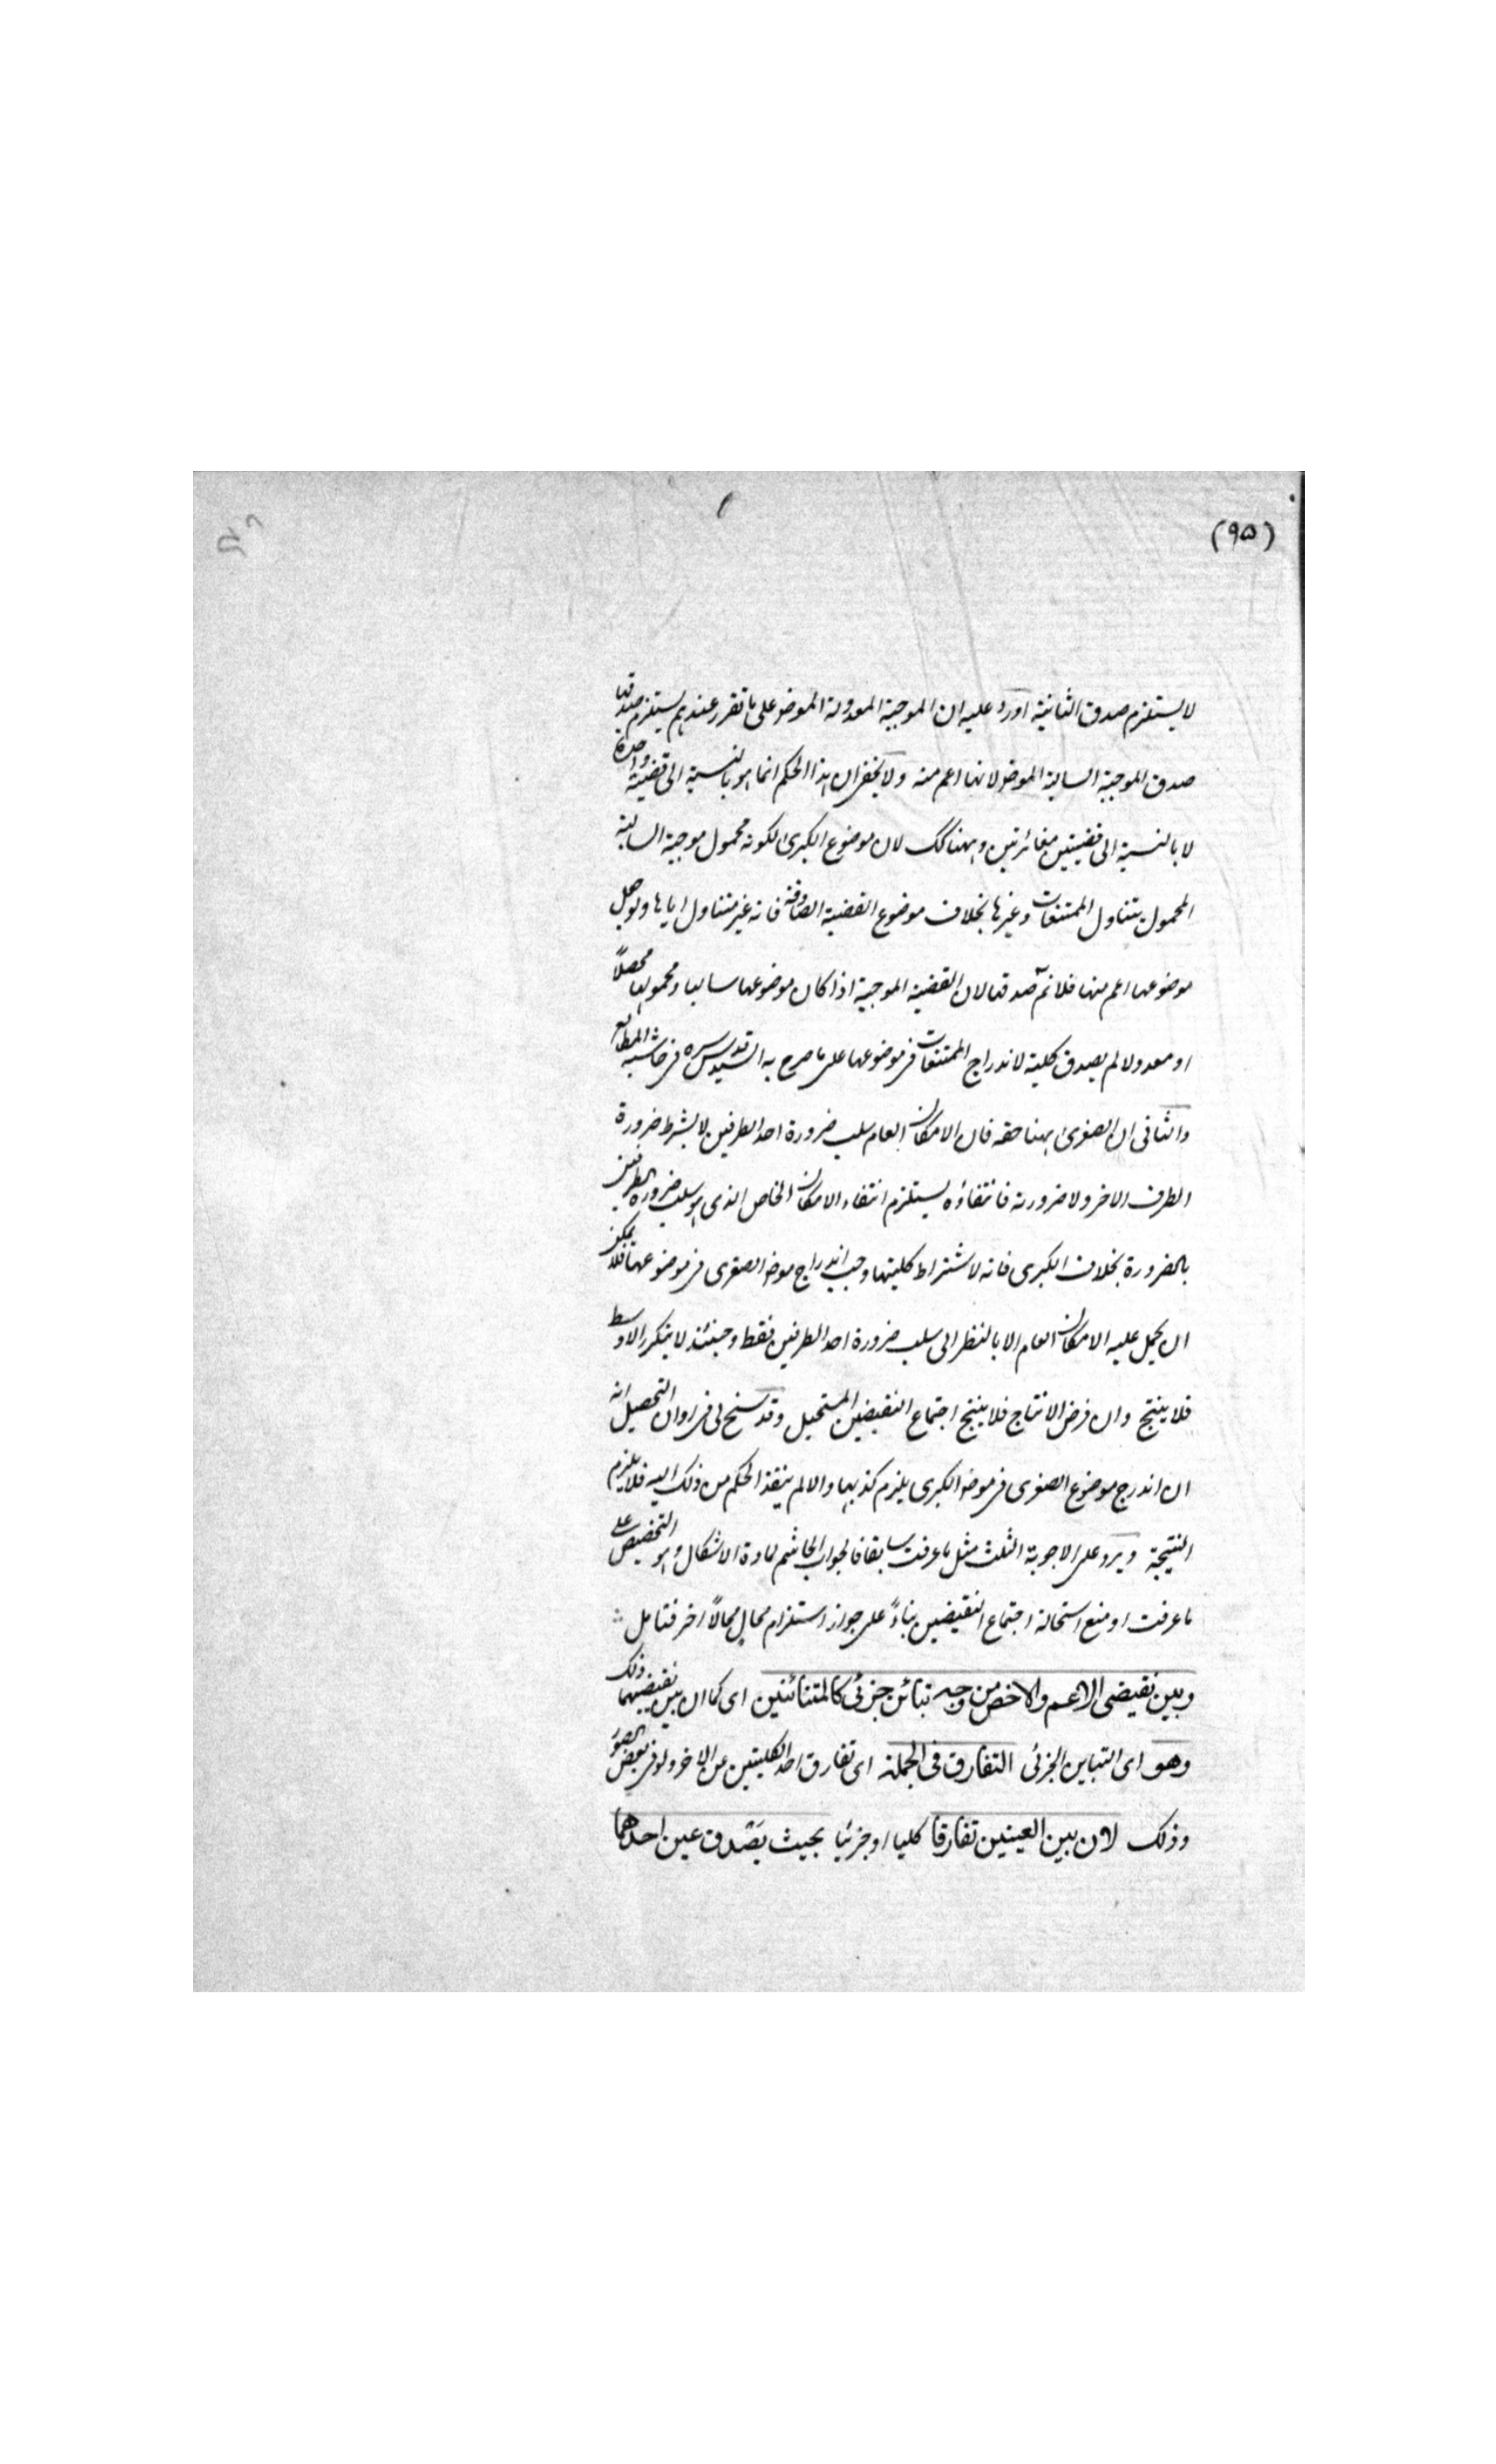 (٩٥)
لا يستلزم صدق الثانية اورد عليه ان الموجبة المعدولة الموضوع على ما تقرر عندهم يستلزم صدقها
صدق الموجبة السالبة الموضوع لانها اعم منه ولا يخفى ان هذا الحكم انما هو بالنسبة الى قضية واحدة
لا بالنسبة الى قضيتين مغائرتين وههنا كك لان موضوع الكبرى لكونه محمول موجبة السالبة
المحمول يتناول الممتنعات وغيرها بخلاف موضوع القضية الصادقة فانه غير متناول اياها ولو جعل
موضوعها اعم منها فلا نم صدقها لان القضية الموجبة اذا كان موضوعها سالبا ومحمولها محصلاً
او معدولا لم يصدق كلية لاندراج الممتنعات فى موضوعها على ما صرح به السيد قدس سره فى حاشية المطالع
والثانى ان الصغرى ههنا حقه فان الامكان العام سلب ضرورة احد الطرفين لا بشرط ضرورة
الطرف الاخر ولا ضرورته فانتفاؤه يستلزم انتفاء الامكان الخاص الذى هو سلب ضرورة الطرفين
بالضرورة بخلاف الكبرى فانه لاشتراط كليتها وجب اندراج موضوع الصغرى فى موضوعها فلا يمكن
ان يحمل عليه الامكان العام الا بالنظر الى سلب ضرورة احد الطرفين فقط وحينئذ لا يتكرر الاوسط
فلا ينتج وان فرض الانتاج فلا ينتج اجتماع النقيضين المستحيل وقد سنح لى فى اوان التحصيل انه
ان اندرج موضوع الصغرى فى موضوع الكبرى يلزم كذبها والا لم ينفذ الحكم من ذلك اليه فلا يلزم
النتيجة ويرد على الاجوبة الثلث مثل ما عرفت سابقا فالجواب الحاسم لمادة الاشكال هو التخصيص على
ما عرفت او منع استحالة اجتماع النقيضين بناءً على جواز استلزام محال محالاً اخر فتامل
وبين نقيضى الاعم والاخص من وجه تبائن جزئى كالمتبائنين اى كما ان بين نقيضيهما ذلك
وهو اى التباين الجزئى التفارق فى الجملة اى تفارق احد الكليتين عن الاخر ولو فى بعض الصور
وذلك لان بين العينين تفارقا كليا او جزئيا بحيث يصدق عين احدهما